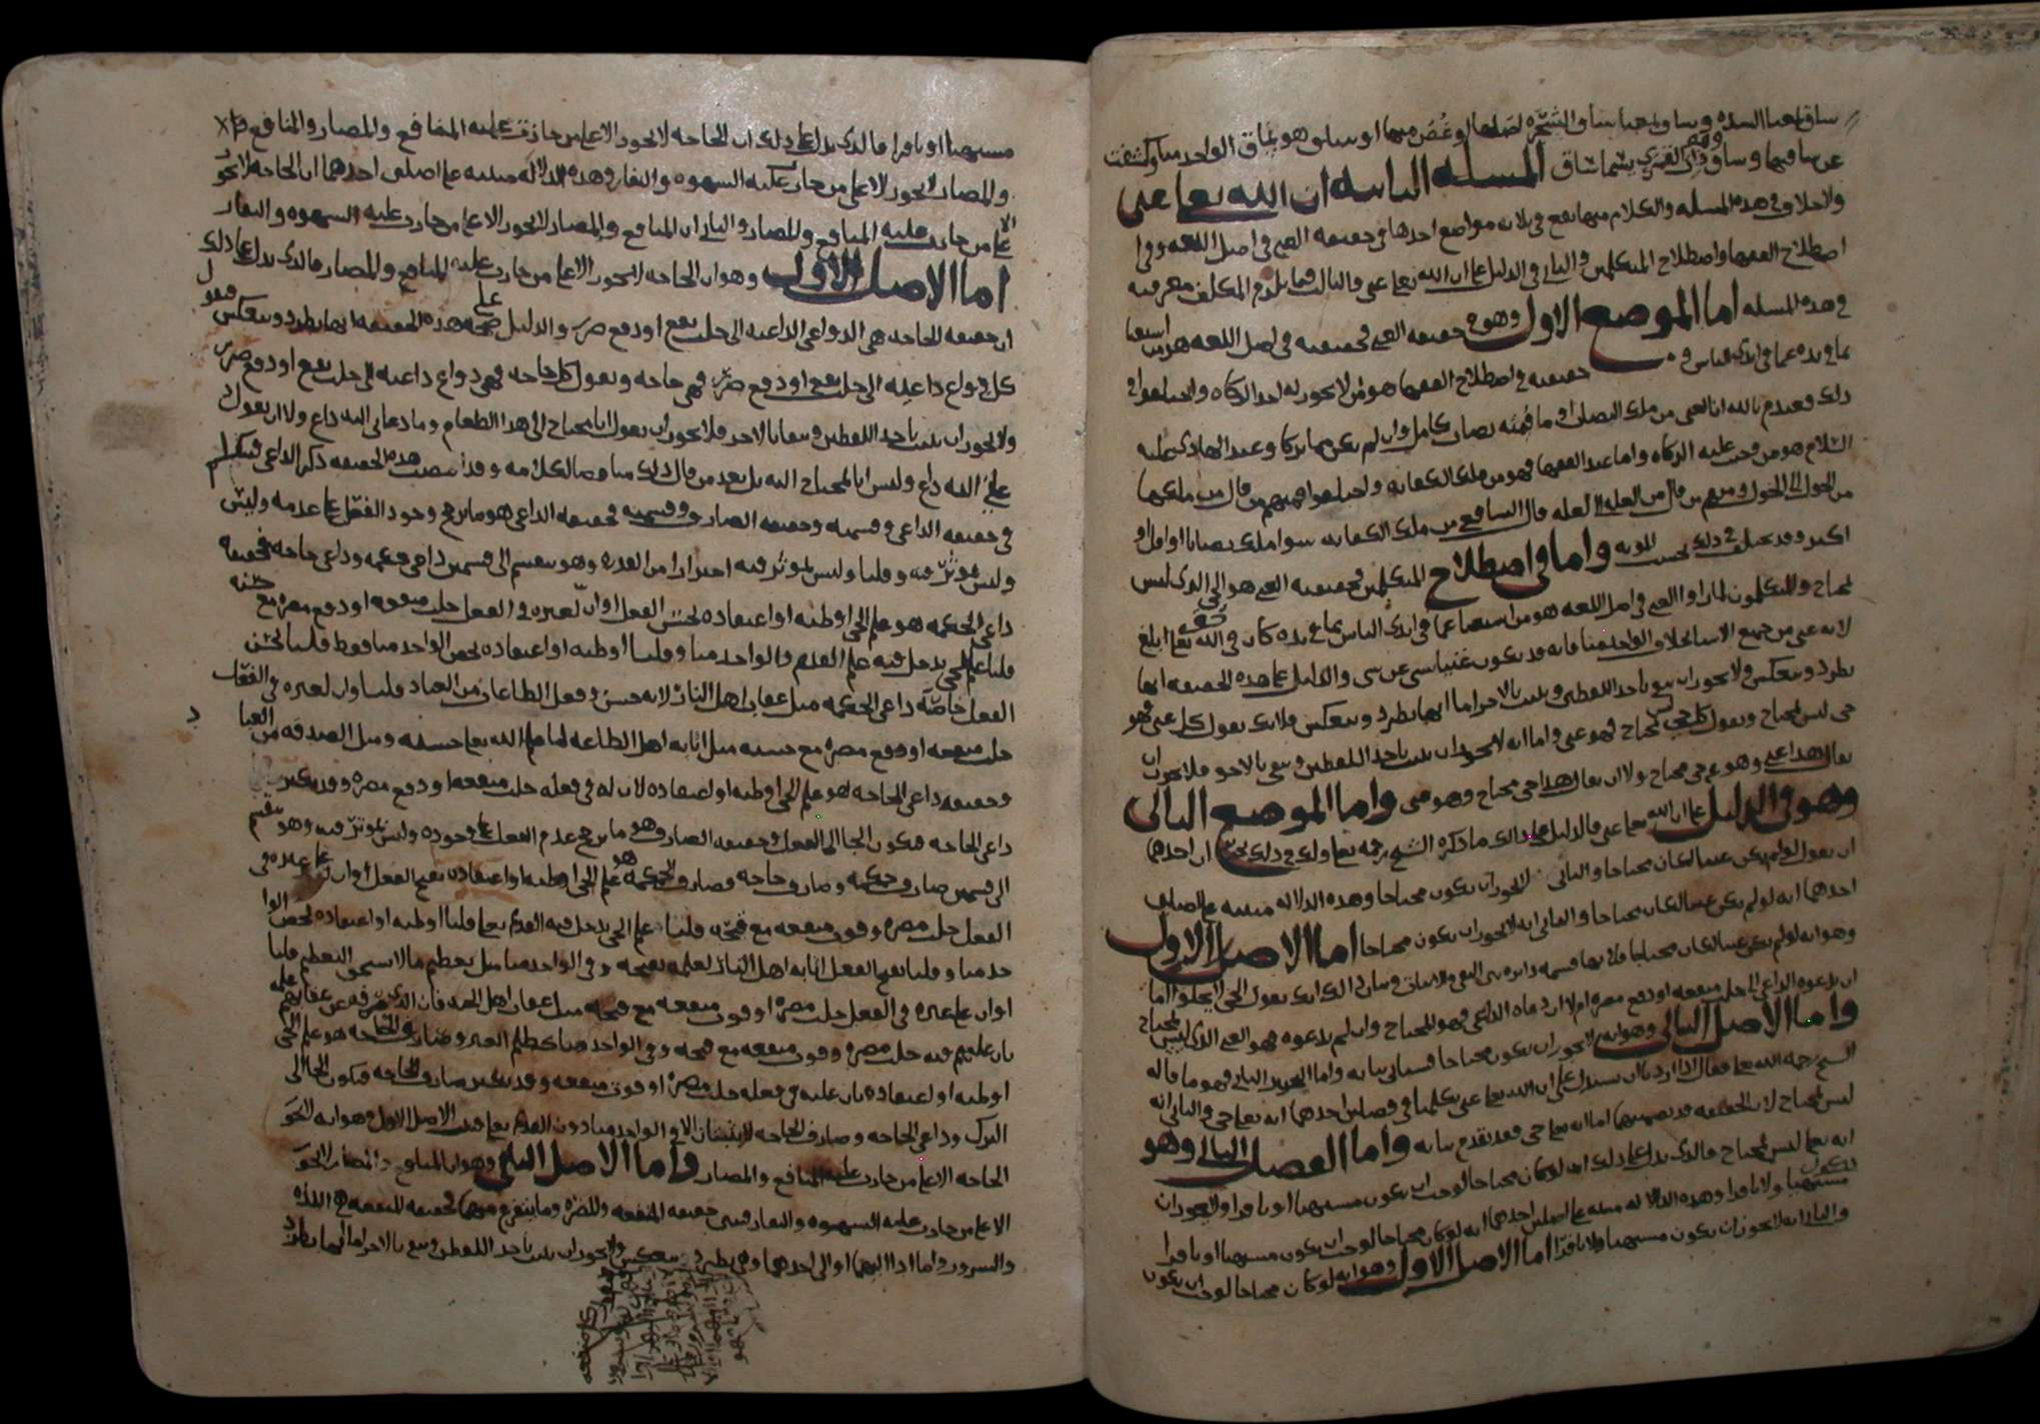 عن ساقيها وساق المسله الثامنه ان الله تعالى غني
والخلاف في هذه المسله والكلام منها يقع في ثلاثه مواضع احدها في حقيقه الغني في اصل اللغه وفي
اصطلاح الفقها واصطلاح المتكلمين والثاني في الدليل على ان الله تعالى غني والثالث فيما يلزم المكلف معرفته
في هذه المسله اما الموضع الاول وهو في حقيقه الغني فحقيقته في اصل اللغه هو من استغنا
بما في يده عما في ايدي الناس حقيقته في اصطلاح الفقها هو من لا يجوز له اخذ الزكاه واختلفوا في
ذلك فعند م بالله ان الغني من ملك النصاب او ما قيمته نصاب كامل وان لم يكن مما يزكا وعند الهادي عليه
السلام هو من وجبت عليه الزكاه واما عند الفقها فهو من ملك الكفايه واختلفوا فمنهم من قال من ملكها
من الحول الى الحول ومنهم من قال من الغله الى الغله قال الشافعي من ملك الكفايه سوا ملك نصابا او اقل او
اكثر وقد يختلف ذلك بحسب المونه واما في اصطلاح المتكلمين فحقيقه الغني هو الحي الذي ليس
بمحتاج والمتكلمون لما راوا الغني في اصل اللغه هو من استغنا عما في ايدي الناس بما في يده كان في الله تعالى ابلغ
لانه غني من جميع الاشيا بخلاف الواحد منا فانه قد يكون غنيا بشي عن شي والدليل على هذه الحقيقه انها
تطرد وتنعكس ولا يجوز ان يثبت باحد اللفظين وينفى بالاخر اما انها تطرد وتنعكس فلانك تقول كل غني فهو
حي ليس بمحتاج وتقول كل حي ليس بمحتاج فهو غني واما انه لا يجوز ان يثبت باحد اللفظين وينفى بالاخر فلا يجوز ان
يقال هذا غني وهو غير حي محتاج ولا ان يقال هذا حي محتاج وهو غني واما الموضع الثاني
وهو في الدليل على ان الله تعالى غني فالدليل على ذلك ما ذكره الشيخ رحمه تعالى وله في ذلك احدهما
ان يقول لو لم يكن غنيا لكان محتاجا والثاني لا يجوز ان يكون محتاجا وهذه الدلاله مبنيه على اصلين
احدهما انه لو لم يكن غنيا لكان محتاجا والثاني انه لا يجوز ان يكون محتاجا اما الاصل الاول
وهو انه لو لم يكن غنيا لكان محتاجا فلانها قسمه دايره بين النفي والاثبات وبيان ذلك انك تقول الحي لا يخلو اما
ان يدعوه الداعي الى جلب منفعه او دفع مضره ام لا ان دعاه الداعي فهو المحتاج وان لم يدعوه فهو الغني الذي ليس بمحتاج
واما الاصل الثاني وهو انه لا يجوز ان يكون محتاجا فسياتي بيانه واما التحرير الثاني فهو ما قاله
الشيخ رحمه الله تعالى فقال اذا اردنا ان نستدل على ان الله تعالى غني تكلمنا في فصلين احدهما انه تعالى حي والثاني انه
ليس بمحتاج لان الحقيقه قد تضمنتهما اما انه تعالى حي فقد تقدم بيانه واما الفصل الثاني وهو
انه تعالى ليس بمحتاج فالذي يدل على ذلك انه لو كان محتاجا لوجب ان يكون مشتهيا او نافرا ولا يجوز ان
يكون مشتهيا ولا نافرا وهذه الدلاله مبنيه على اصلين احدهما انه لو كان محتاجا لوجب ان يكون مشتهيا او نافرا
والثاني انه لا يجوز ان يكون مشتهيا ولا نافرا اما الاصل الاول وهو انه لو كان محتاجا لوجب ان يكون
مشتهيا او نافرا فالذي يدل على ذلك ان الحاجه لا تجوز الا على من جازت عليه المنافع والمضار والمنافع
والمضار لا تجوز الا على من جازت عليه الشهوه والنفار وهذه الدلاله مبنيه على اصلين احدهما ان الحاجه لا تجوز
الا على من جازت عليه المنافع والمضار والثاني ان المنافع والمضار لا تجوز الا على من جازت عليه الشهوه والنفار
اما الاصل الاول وهو ان الحاجه لا تجوز الا على من جازت عليه المنافع والمضار فالذي يدل على ذلك
ان حقيقه الحاجه هي الدواعي الداعيه الى جلب نفع او دفع ضرر والدليل على صحه هذه الحقيقه انها تطرد وتنعكس فتقول
كل دواع داعيه الى جلب نفع او دفع ضرر فهي حاجه وتقول كل حاجه فهي دواع داعيه الى جلب نفع او دفع ضرر
ولا يجوز ان يثبت باحد اللفظين وينفى بالاخر فلا يجوز ان يقول انا محتاج الى هذا الطعام وما دعاني اليه داع ولا ان يقول
دعاني اليه داع وليس انا بمحتاج اليه بل يعد من قال ذلك مناقضا لكلامه وقد تضمنت هذه الحقيقه ذكر الداعي فنتكلم
في حقيقه الداعي وقسمته وحقيقه الصارف وقسمته فحقيقه الداعي هو ما يرجح وجود الفعل على عدمه وليس
بموثر فيه وقلنا وليس بموثر فيه احترازا من القدره وهو ينقسم الى قسمين داعي حكمه وداعي حاجه فحقيقه
داعي الحكمه هو علم الحي او ظنه او اعتقاده بحسن الفعل او ان لغيره في الفعل جلب منفعه او دفع مضره مع حسنه
قلنا علم الحي يدخل فيه علم القديم والواحد منا وقلنا او ظنه او اعتقاده يخص الواحد منا فقط قلنا بحسن
الفعل خاصه داعي الحكمه مثل عقاب اهل النار لانه حسن وفعل الطاعات من العباد قلنا وان لغيره في الفعل
جلب منفعه او دفع مضره مع حسنه مثل اثابه اهل الطاعه لعلم الله تعالى حسنه ومثل الصدقه من العباد
وحقيقه داعي الحاجه هو علم الحي او ظنه او اعتقاده لان له في فعله جلب منفعه او دفع مضره وقد يكثر
داعي الحاجه فيكون الجا الى الفعل وحقيقه الصارف هو ما يرجح عدم الفعل على وجوده وليس بموثر فيه وهو ينقسم
الى قسمين صارف حكمه وصارف حاجه فصارف الحكمه هو علم الحي او ظنه او اعتقاده بقبح الفعل او ان على غيره في
الفعل جلب مضره وفوت منفعه مع قبحه قلنا علم الحي يدخل فيه القديم تعالى قلنا او ظنه او اعتقاده يخص الواحد
منا وقلنا بقبح الفعل اثابه اهل النار لعلمه بقبحه وفي الواحد منا مثل تعظيم من لا يستحق التعظيم قلنا
او ان على غيره في الفعل جلب مضره او فوت منفعه مع قبحه مثل عقاب اهل الجنه فان الذي صرفه عن عقابهم علمه
بان عليهم فيه جلب مضره وفوت منفعه مع قبحه وفي الواحد منا كظلم الغير وصارف الحاجه هو علم الحي
او ظنه او اعتقاده بان عليه في فعله جلب مضره او فوت منفعه وقد يكثر صارف الحاجه فيكون الجا الى
الترك وداعي الحاجه وصارف الحاجه لا يثبتان الا في الواحد منا دون القديم تعالى فثبت الاصل الاول وهو انه لا تجوز
الحاجه الا على من جازت عليه المنافع والمضار واما الاصل الثاني وهو ان المنافع والمضار لا تجوز
الا على من جازت عليه الشهوه والنفار فنبين حقيقه المنفعه والمضره وما يتفرع منهما فحقيقه المنفعه هي اللذه
والسرور وما ادا اليهما او الى احدهما وهي تطرد وتنعكس ولا يجوز ان يثبت باحد اللفظين وينفى بالاخر اما انها تطرد